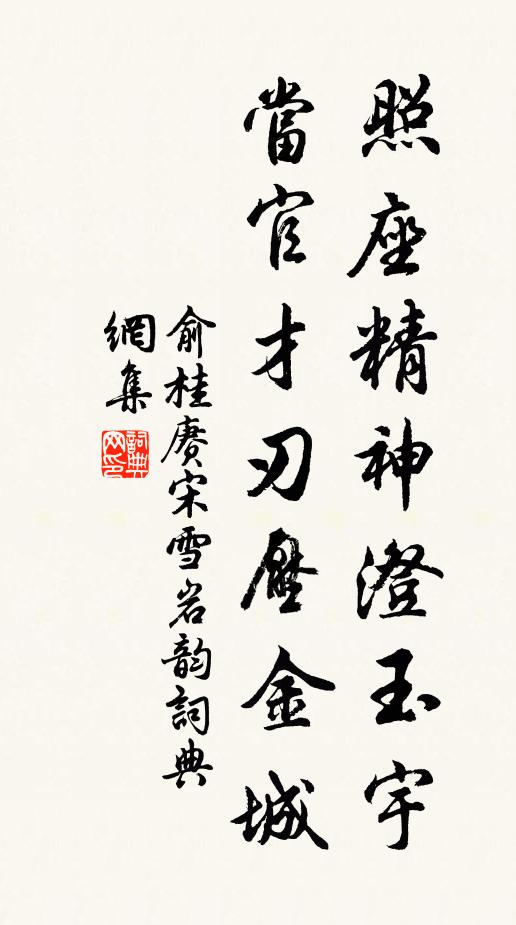 照座精神澄玉宇
當官才刃壓金城
俞桂賡宋雪岩韵詞典
網集
詞典
网印